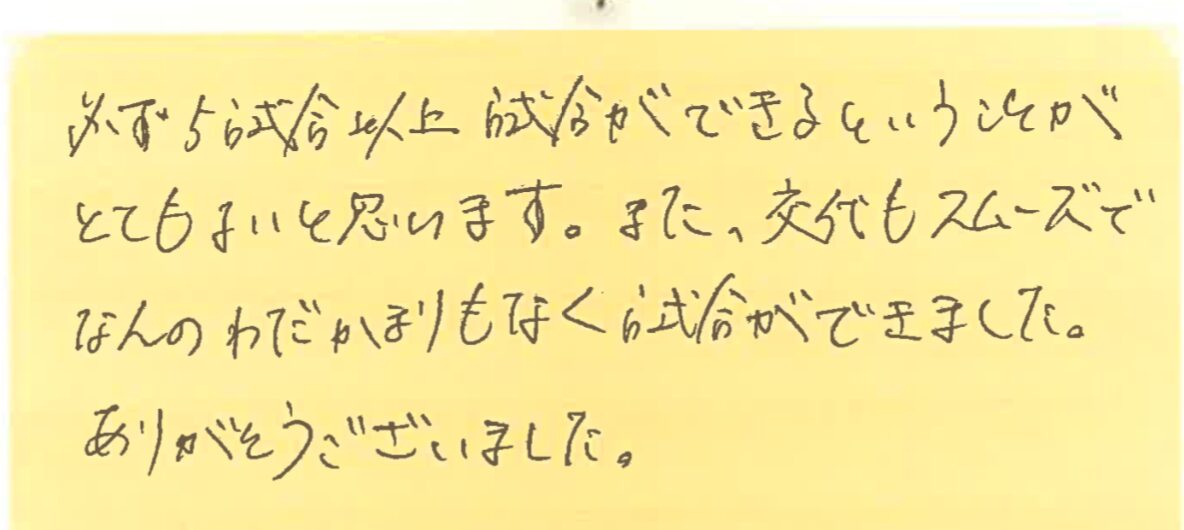 必ず5試合以上試合ができるということが
とてもよいと思います。また、交代もスムーズで
なんのわだかまりもなく試合ができました。
ありがとうございました。